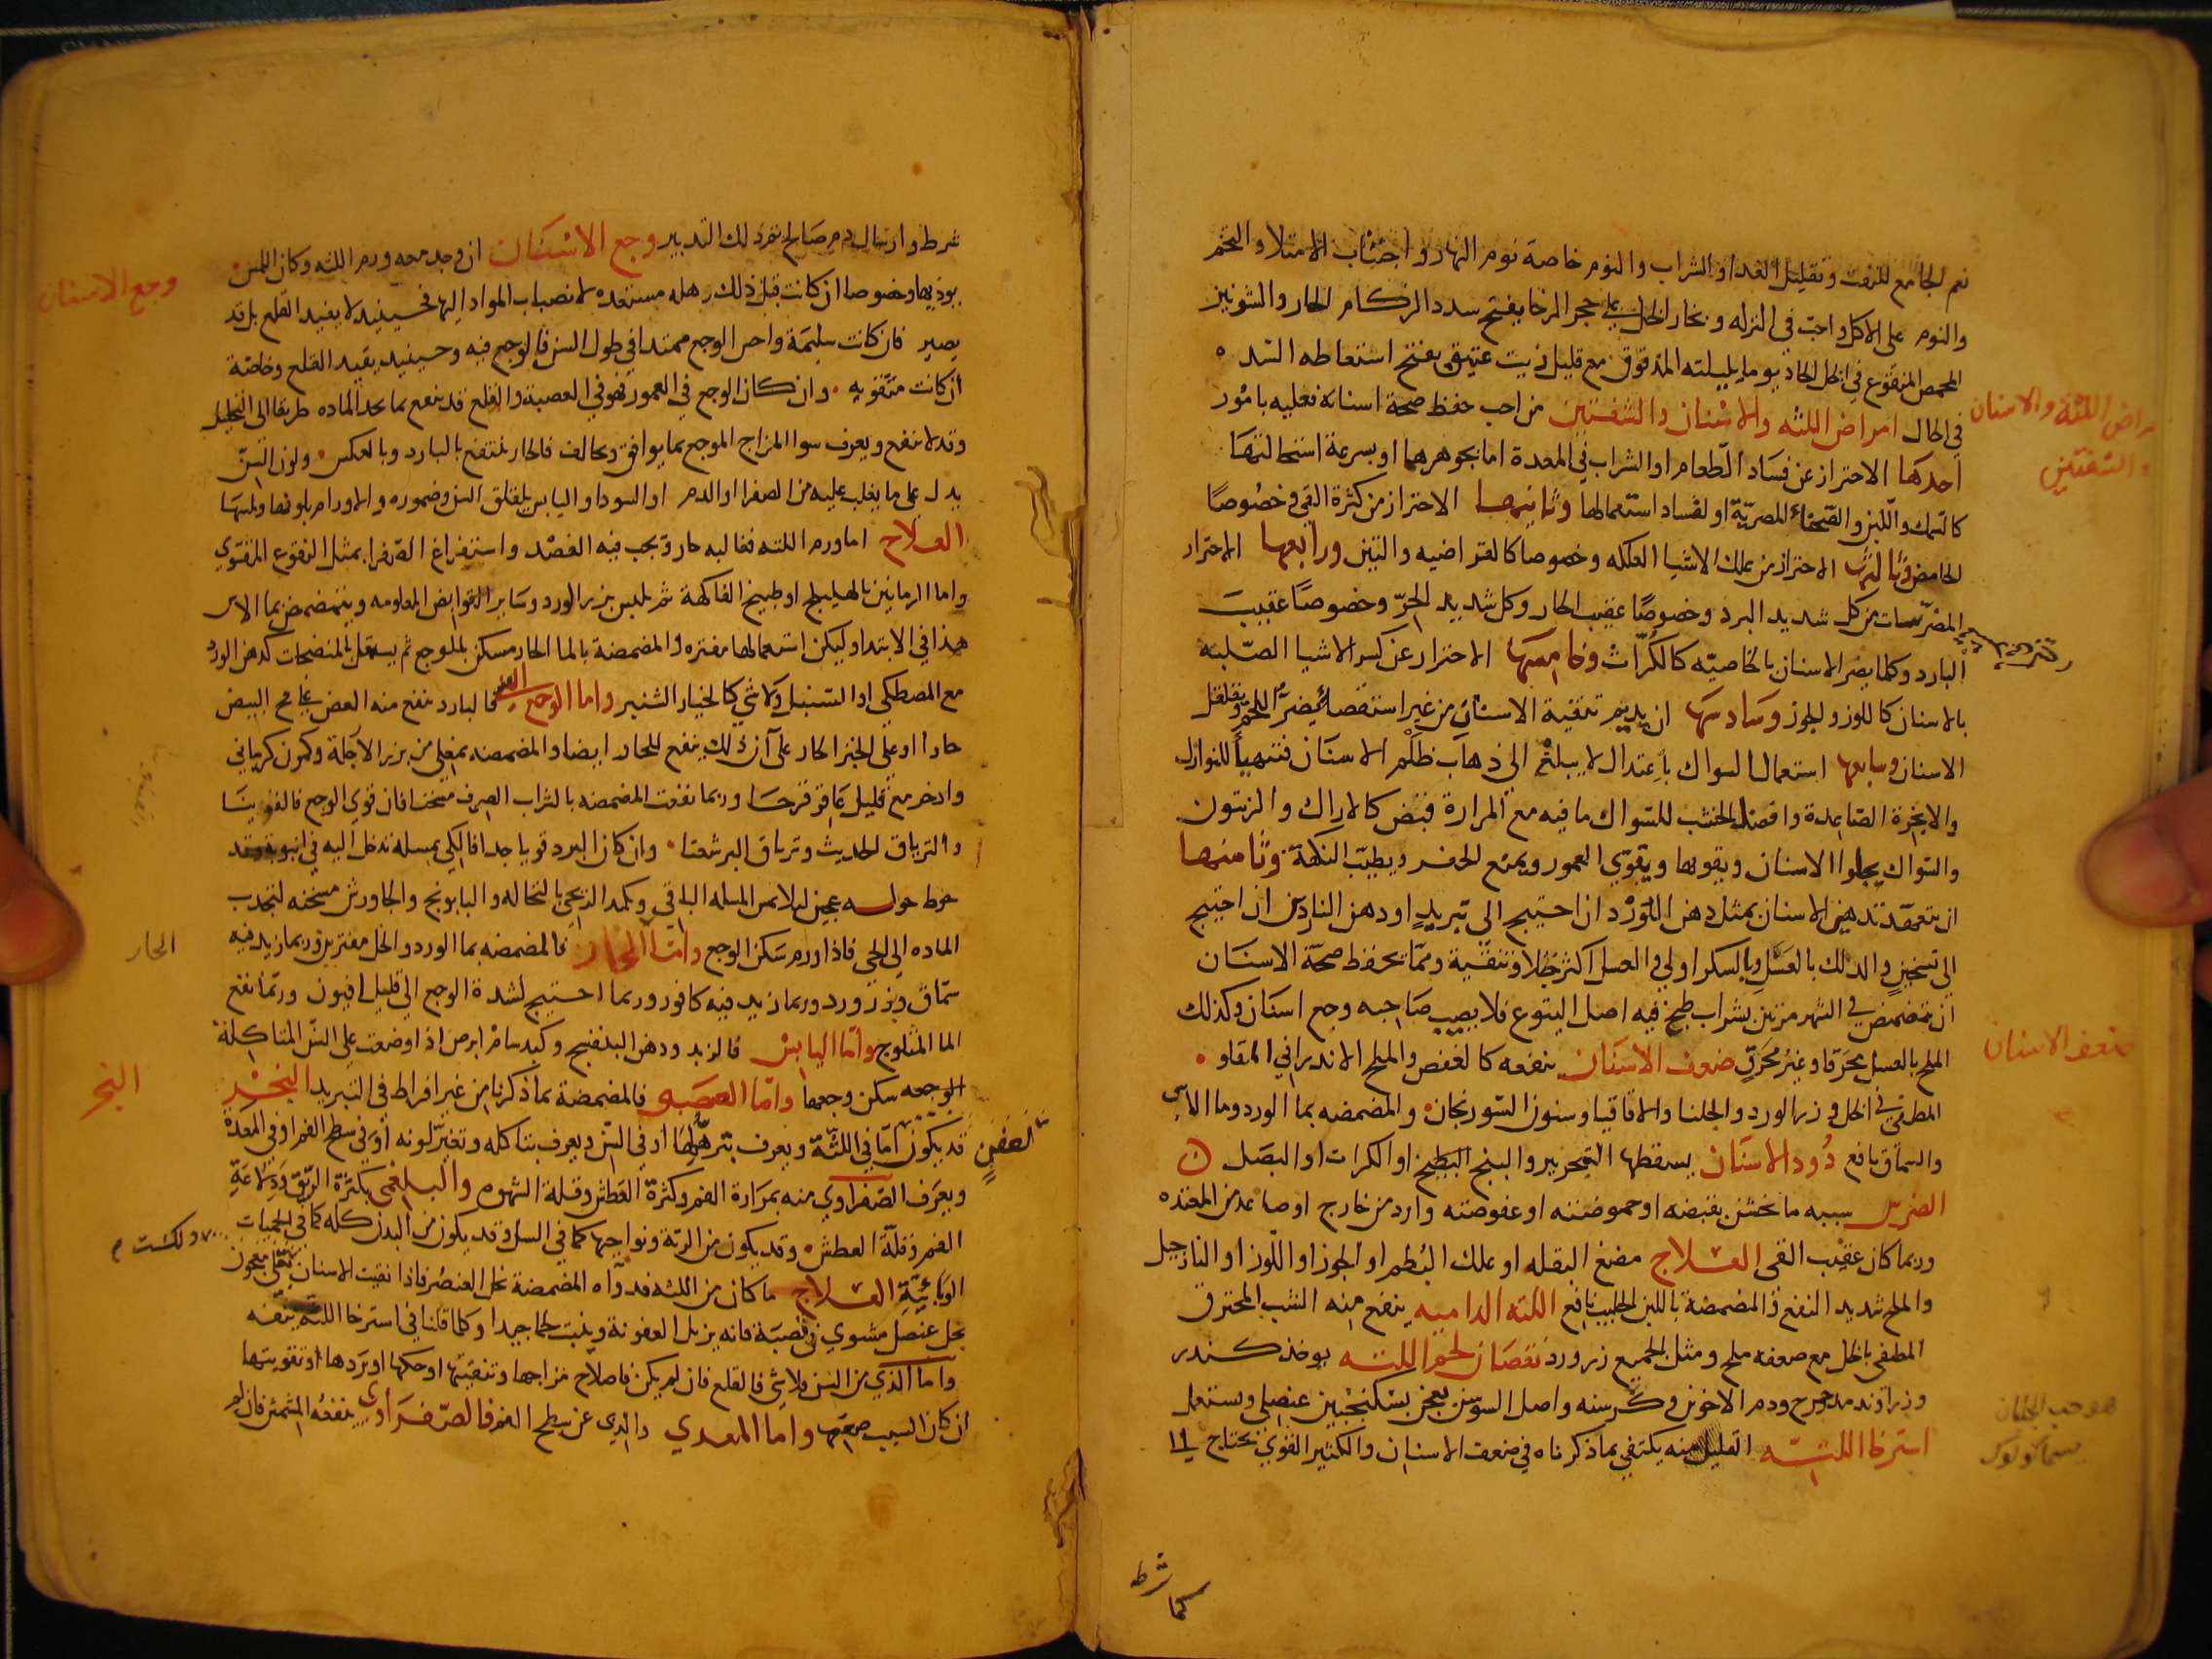 نعم الجامع للزفت وتقليل الغدا والشراب والنوم خاصة نوم النهار واجتناب الامتلا والتخم
والنوم على الاكل واجب فى النزله وبخار الخل على حجر الرحا يفتح سدد الزكام الحار والشونيز
المحمص المنقوع فى الخل الحاد يوما بليلته المدقوق مع قليل زيت عتيق يفتح استعاطه السده
فى الحال امراض اللثه والاسنان والشفتين من احب حفظ صحة اسنانه فعليه بامور
امراض اللثة والاسنان
والشفتين
احدها الاحتراز عن فساد الطعام او الشراب فى المعدة اما بجوهرهما او بسرعة استحالتهما
كالسمك واللبن والصحناة المصرية او لفساد استعمالها وثانيها الاحتراز من كثرة القى وخصوصا
الحامض وثالثها الاحتراز من علك الاشيا العلكه وخصوصا كالقراضيه والتين ورابعها الاحتراز
المضرسات من كل شديد البرد وخصوصا عقيب الحار وكل شديد الحر وخصوصا عقيب
البارد وكلما يضر الاسنان بالخاصيه كالكراث وخامسها الاحتراز عن كسر الاشيا الصلبه
بالاسنان كاللوز والجوز وسادسها ان يديم تنقية الاسنان من غير استقصا يضر اللحم ويقلقل
الاسنان وسابعها استعمال السواك باعتدال لا يبلغ الى ذهاب ظلم الاسنان فتتهيأ للنوازل
والابخرة الصاعدة وافضل الخشب للسواك ما فيه مع المرارة قبض كالاراك والزيتون
والسواك يجلوا الاسنان ويقوها ويقوي العمور ويمنع الحفر ويطيب النكهة وثامنها
ان يتعهد تدهين الاسنان بمثل دهن الورد ان احتيج الى تبريد او دهن الناردين ان احتيج
الى تسخين والدلك بالعسل وبالسكر اولى والعسل اكثر جلا وتنقية ومما يحفظ صحة الاسنان
ان يتمضمض في الشهر مرتين بشراب طبخ فيه اصل اليتوع فلا يصيب صاحبه وجع اسنان وكذلك
الملح بالعسل محرقا وغير محرق ضعف الاسنان ينفعه كالعفص والملح الاندراني المقلو
ضعف الاسنان
المطفى في الخل وزر الورد والجلنا والاقاقيا وسنون السورنجان والمضمضه بما الورد وما الآس
والسماق نافع دود الاسنان يسقطها التبخير ببزر البنج البطيخ او الكراث او البصل
الضرس سببه ما يخشن بقبضه او حموضته او عفوصته وارد من خارج او صاعد من المعده
وربما كان عقيب القى العلاج مضغ البقله او علك البطم او الجوز او اللوز او النارجيل
والملح شديد النفع والمضمضة باللبن الحليب نافع اللثه الداميه ينفع منه الشب المحترق
المطفى بالخل مع ضعفه ملح ومثل الجميع زر ورد نقصان لحم اللثه يوخذ كندر
وزراوند مدحرج ودم الاخوين وكرسنه واصل السوسن يعجن بسكنجبين عنصلى ويستعمل
استرخا اللثه القليل منه يكتفي بما ذكرناه في ضعف الاسنان والكثير القوي يحتاج الى
هو حب
شرط وارسال دم صالح ثم ذلك التدبير وجع الاسنان ان وجد معه ورم اللثه وكان اللمس
وجع الاسنان
يوذيها وخصوصا ان كانت قبل ذلك رهله مستعده لانصباب المواد اليها فحينيذ لا يفيد القلع بل قد
يضر فان كانت سليمة واحس الوجع ممتدا في طول السن فالوجع فيه وحينيذ يفيد القلع وخاصة
ان كانت متثقبه وان كان الوجع في العمور فهو في العصبة والقلع قد ينفع بما يجد الماده طريقا الى التحليل
وقد لا ينفع ويعرف سوا المزاج الموجع بما يوافق ويخالف فالحار ينتفع بالبارد وبالعكس ولون السن
يدل على ما يغلب عليه من الصفرا او الدم او السودا واليابس يقلقل السن وضموره والاورام بلونها ولمسها
العلاج اما ورم اللثه فغالبه حار ويجب فيه الفصد واستفراغ الصفرا بمثل النقوع المقوي
واما الرمانين بالهليلج او طبيخ الفاكهة ثم بلبس بزر الورد وساير القوابض المعلومه ويتمضمض بما الاس
هذا في الابتدا وليكن استعمالها مفتره والمضمضة بالما الحار مسكن للوجع ثم يستعمل المنضجات كدهن الورد
مع المصطكى او السنبل ولا شى كالخيار الشنبر واما الوجع السنى فالبارد ينفع منه العض على مح البيض
حارا او على الخبز الحار على ان ذلك ينفع الحار ايضا والمضمضه بمغلى من بزر الاجلة وكمون كرماني
وادخر مع قليل عاقر قرحا وربما نفعت المضمضه بالشراب الصرف مسخنا فان قوي الوجع فالفلونيا
والترياق الحديث وترياق البرشعثا وان كان البرد قويا جدا فالكي بمسله تدخل اليه في انبوبة وقد
حوط حوله عجين ليلا تمس المسله الباقي ويكمد اللحى بالنخاله والبابونج والجاورش مسخنه لتجذب
الماده الى اللحى فاذا ورم سكن الوجع واما الحار فالمضمضه بما الورد والخل مفترين وربما زيد فيه
الحار
سماق وزر ورد وربما زيد فيه كافور وربما احتيج لشدة الوجع الى قليل افيون وربما نفع
الما المثلوج واما اليابس فالزبد ودهن البنفسج وكبد سام ابرص اذا وضعت على السن المتاكلة
الوجعه سكن وجعها واما العصبى فالمضمضة بما ذكرنا من غير افراط فى التبريد البخر
البخر
قد يكون اما في اللثة لعفن ويعرف بترهلها او في السن ويعرف بتاكله وتغير لونه او في سطح الفم او في المعدة
ويعرف الصفراوي منه بمرارة الفم وكثرة العطش وقلة الشهوه والبلغمى بكثرة الريق ودلاعة
الفم وقلة العطش وقد يكون من الرية ونواحيها كما في السل وقد يكون من البدن كله كما في الحميات
الوبائية العلاج ما كان من اللثه فدواه المضمضة بخل العنصل فاذا نقيت الاسنان بمعجون
بخل عنصل مشوي في قصبة فانه يزيل العفونة وينبت لحما جيدا وكلما قلنا في استرخا اللثة ينفعه
واما الذي من السن فلا شى فالقلع فان لم يكن فاصلاح مزاجها وتنقيتها او حكها او بردها او تقويتها
ان كان السبب ضعفها واما المعدي والذي عن سطح الفم فالصفراوي ينفعه المشمش فان لم